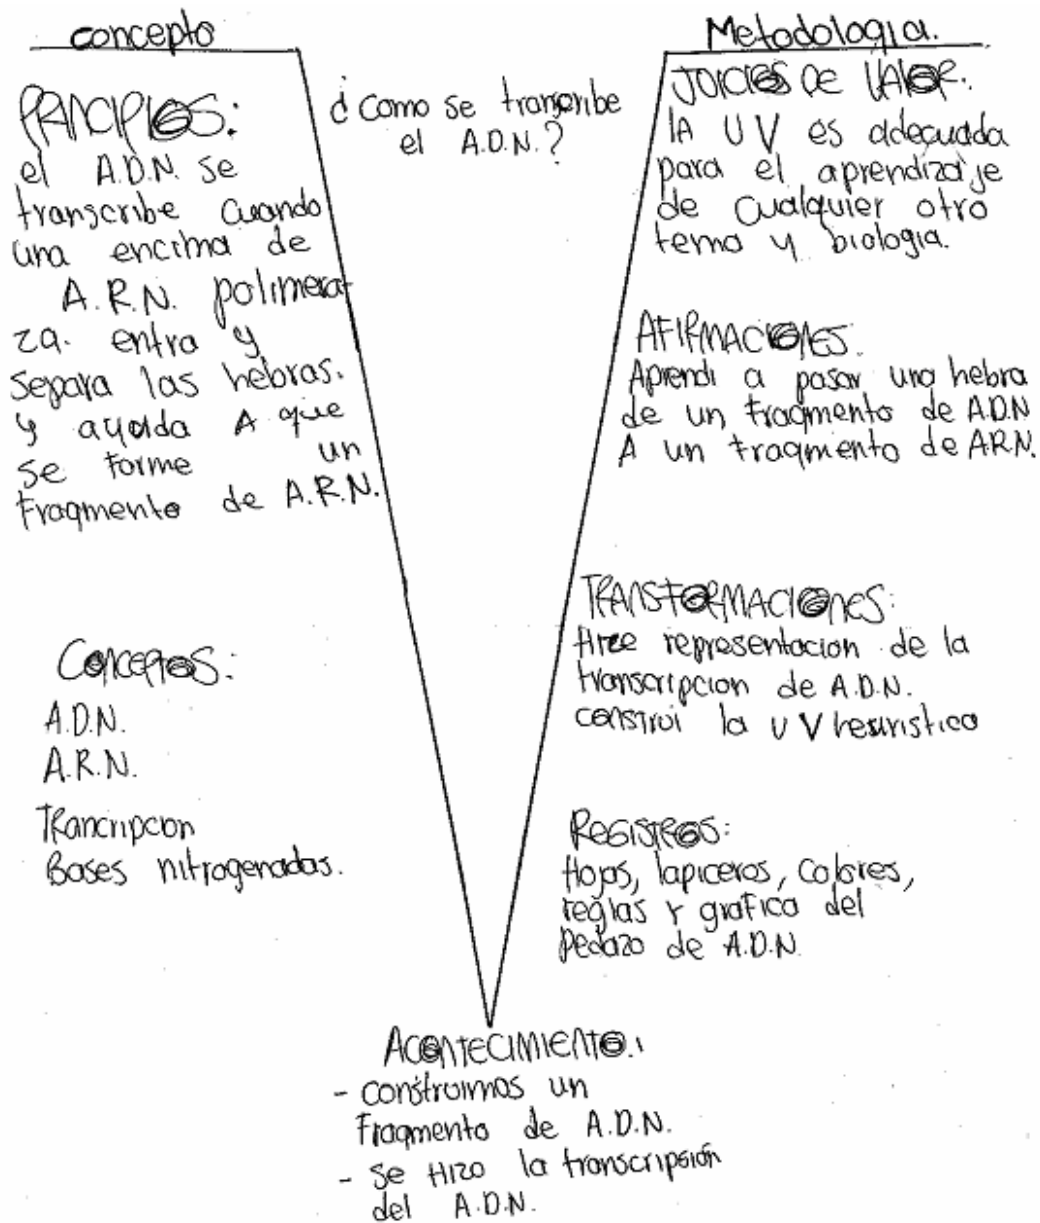 concepto
PRINCIPIOS:
el A.D.N. se
transcribe cuando
una encima de
A.R.N. polimera-
za. entra y
separa las hebras.
y ayuda A que
se forme un
fragmento de A.R.N.
Conceptos:
A.D.N.
A.R.N.
TRancripcon
Bases nitrogenadas.
¿Como se transcribe
el A.D.N.?
Metodologia.
JUICIOS DE VALOR:
lA UV es adecuada
para el aprendizaje
de cualquier otro
tema y biologia.
AFIRMACIONES:
Aprendi a pasar una hebra
de un fragmento de A.D.N
A un fragmento de A.R.N.
TRANSFORMACIONES:
Hize representacion de la
transcripcion de A.D.N.
construi la UV heuristica
REGISTROS:
Hojas, lapiceros, colores,
reglas y grafica del
pedazo de A.D.N.
ACONTECIMIENTO:
- construimos un
fragmento de A.D.N.
- se Hizo la transcripsión
del A.D.N.